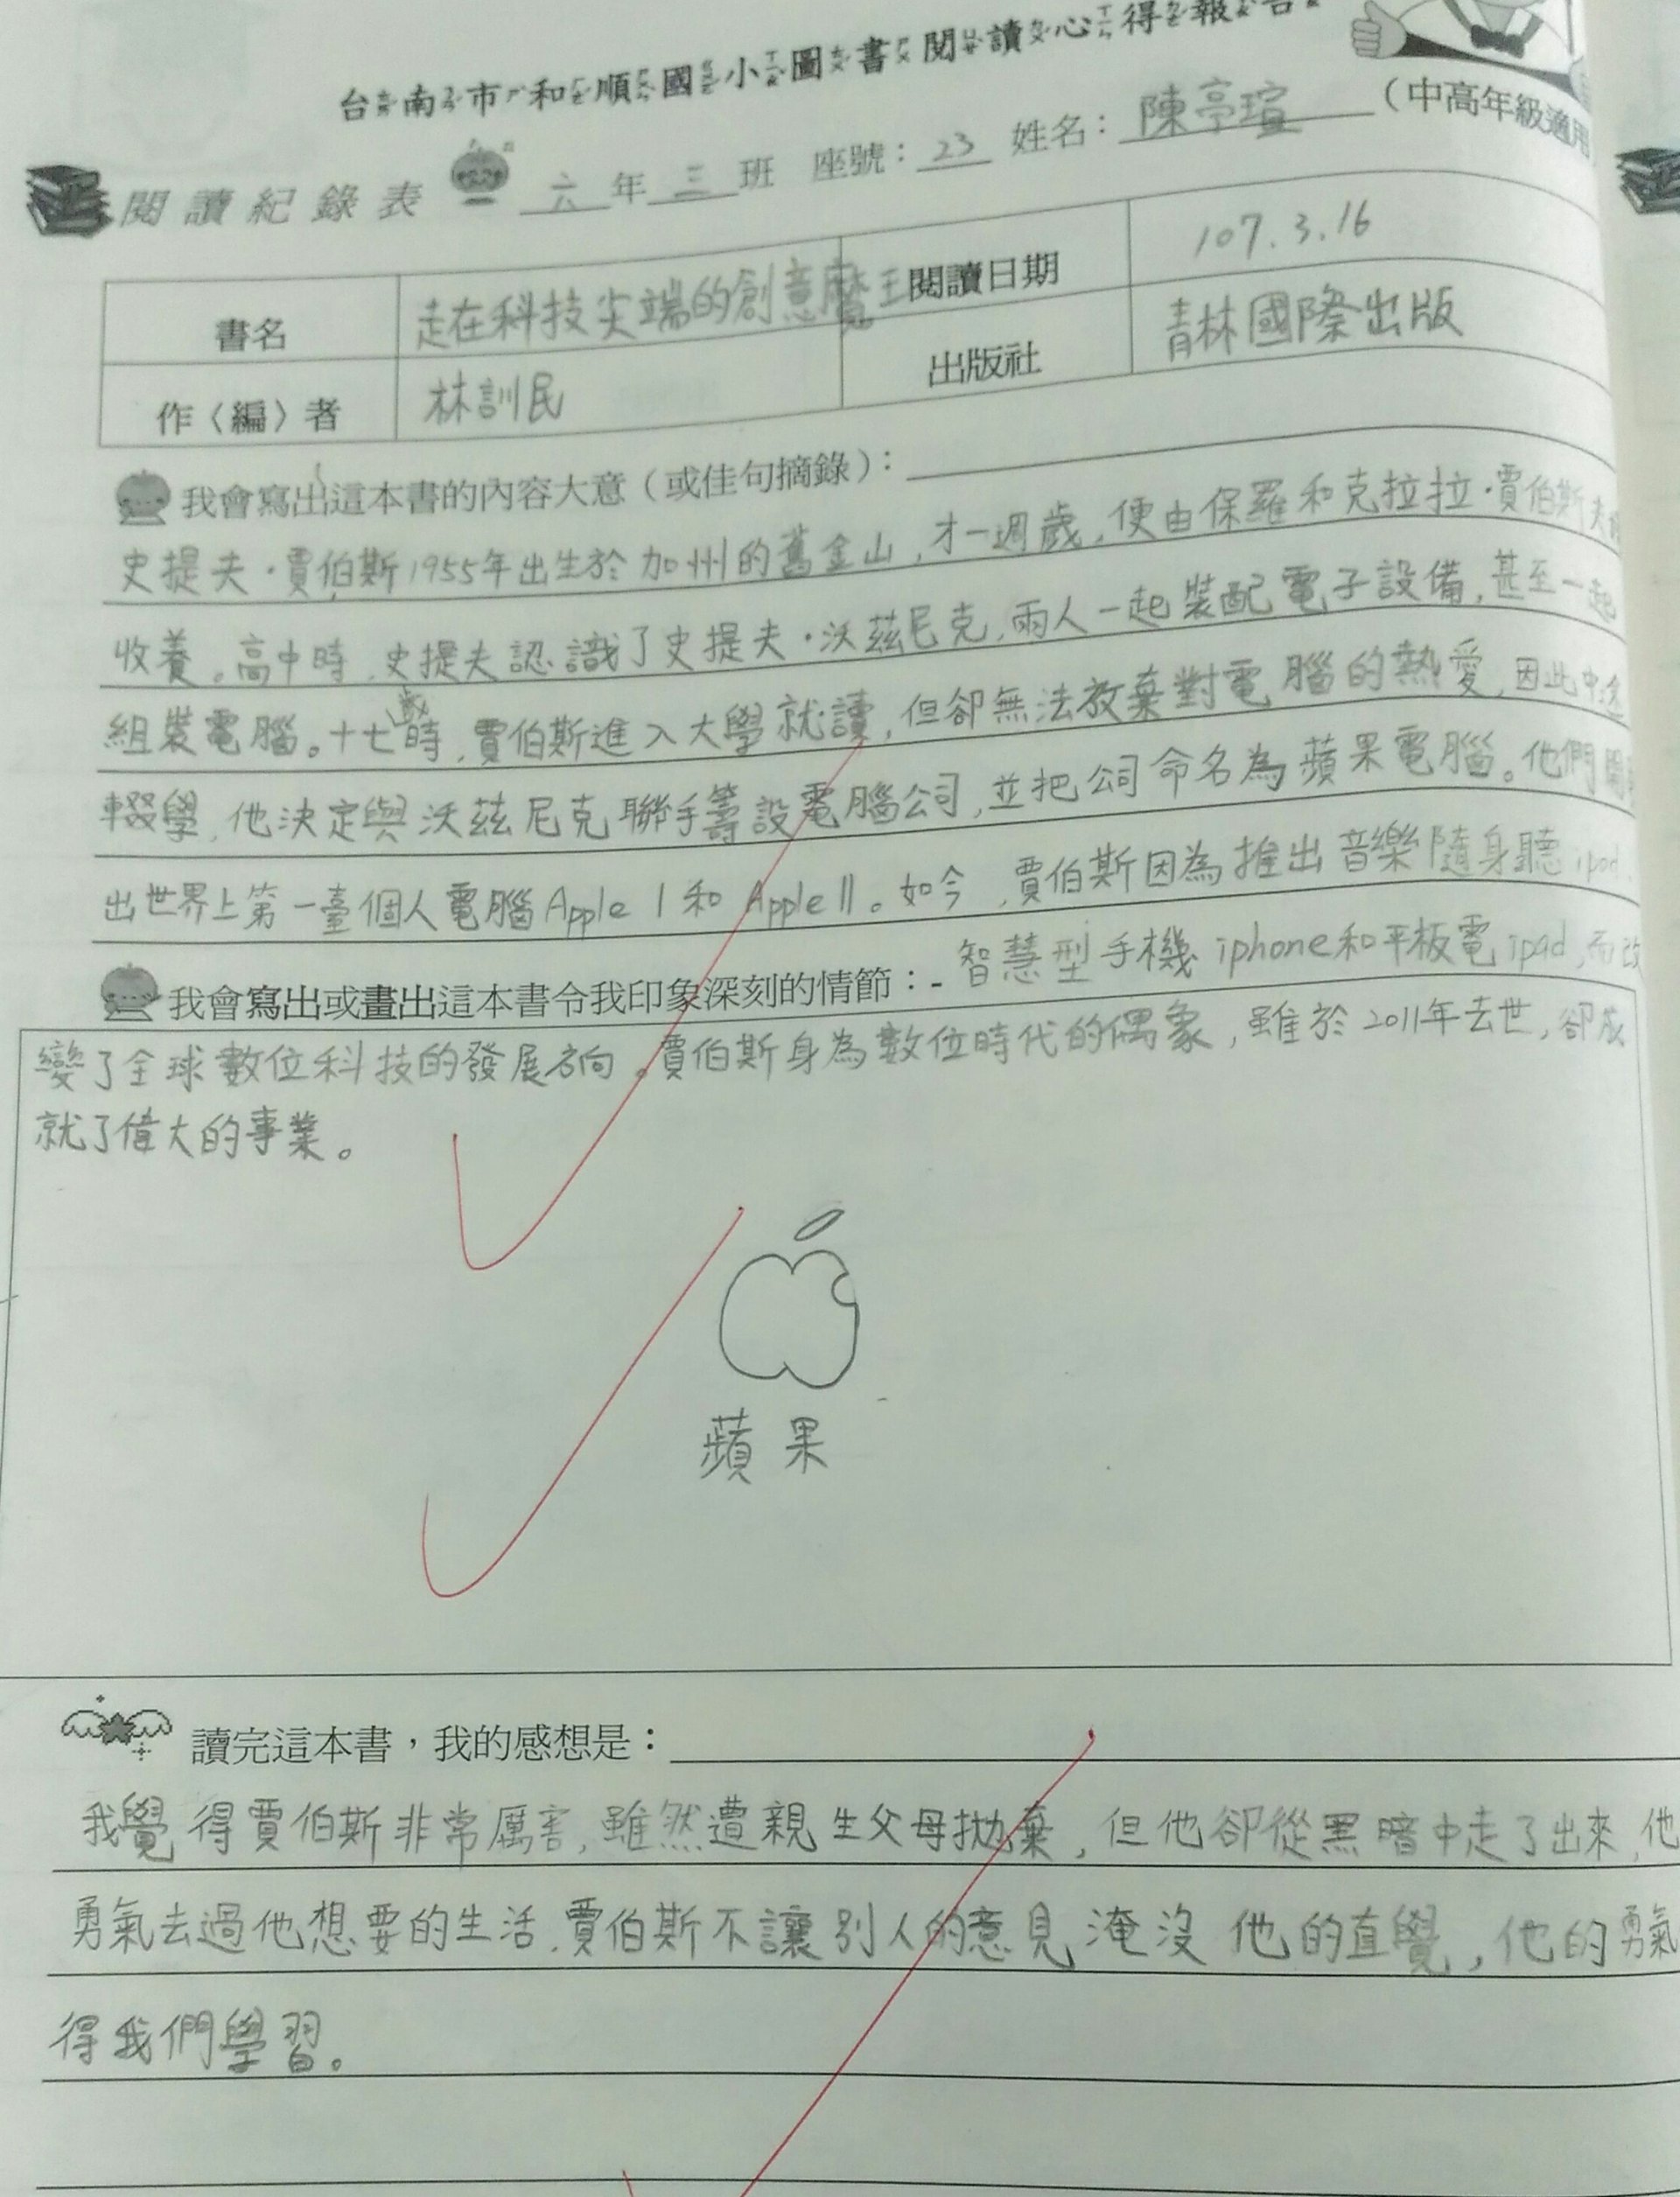 台南市和順國小圖書閱讀心得報告
(中高年級適用
閱讀紀錄表 六年三班 座號：23 姓名：陳亭瑄
書名 走在科技尖端的創意魔王 閱讀日期 107.3.16
作〈編〉者 林訓民 出版社 青林國際出版
我會寫出這本書的內容大意（或佳句摘錄）：
史提夫·賈伯斯1955年出生於加州的舊金山,才一週歲,便由保羅和克拉拉·賈伯斯夫
收養。高中時,史提夫認識了史提夫·沃茲尼克,兩人一起裝配電子設備,甚至一起
組裝電腦。十七歲時,賈伯斯進入大學就讀,但卻無法放棄對電腦的熱愛,因此中途
輟學,他決定與沃茲尼克聯手籌設電腦公司,並把公司命名為蘋果電腦。他們開
出世界上第一臺個人電腦Apple I和Apple II。如今,賈伯斯因為推出音樂隨身聽ipod
我會寫出或畫出這本書令我印象深刻的情節：智慧型手機iphone和平板電ipad,而改
變了全球數位科技的發展方向。賈伯斯身為數位時代的偶象,雖於2011年去世,卻成
就了偉大的事業。
蘋果
讀完這本書，我的感想是：
我覺得賈伯斯非常厲害,雖然遭親生父母拋棄,但他卻從黑暗中走了出來,他
勇氣去過他想要的生活,賈伯斯不讓別人的意見淹沒他的直覺,他的勇氣
得我們學習。